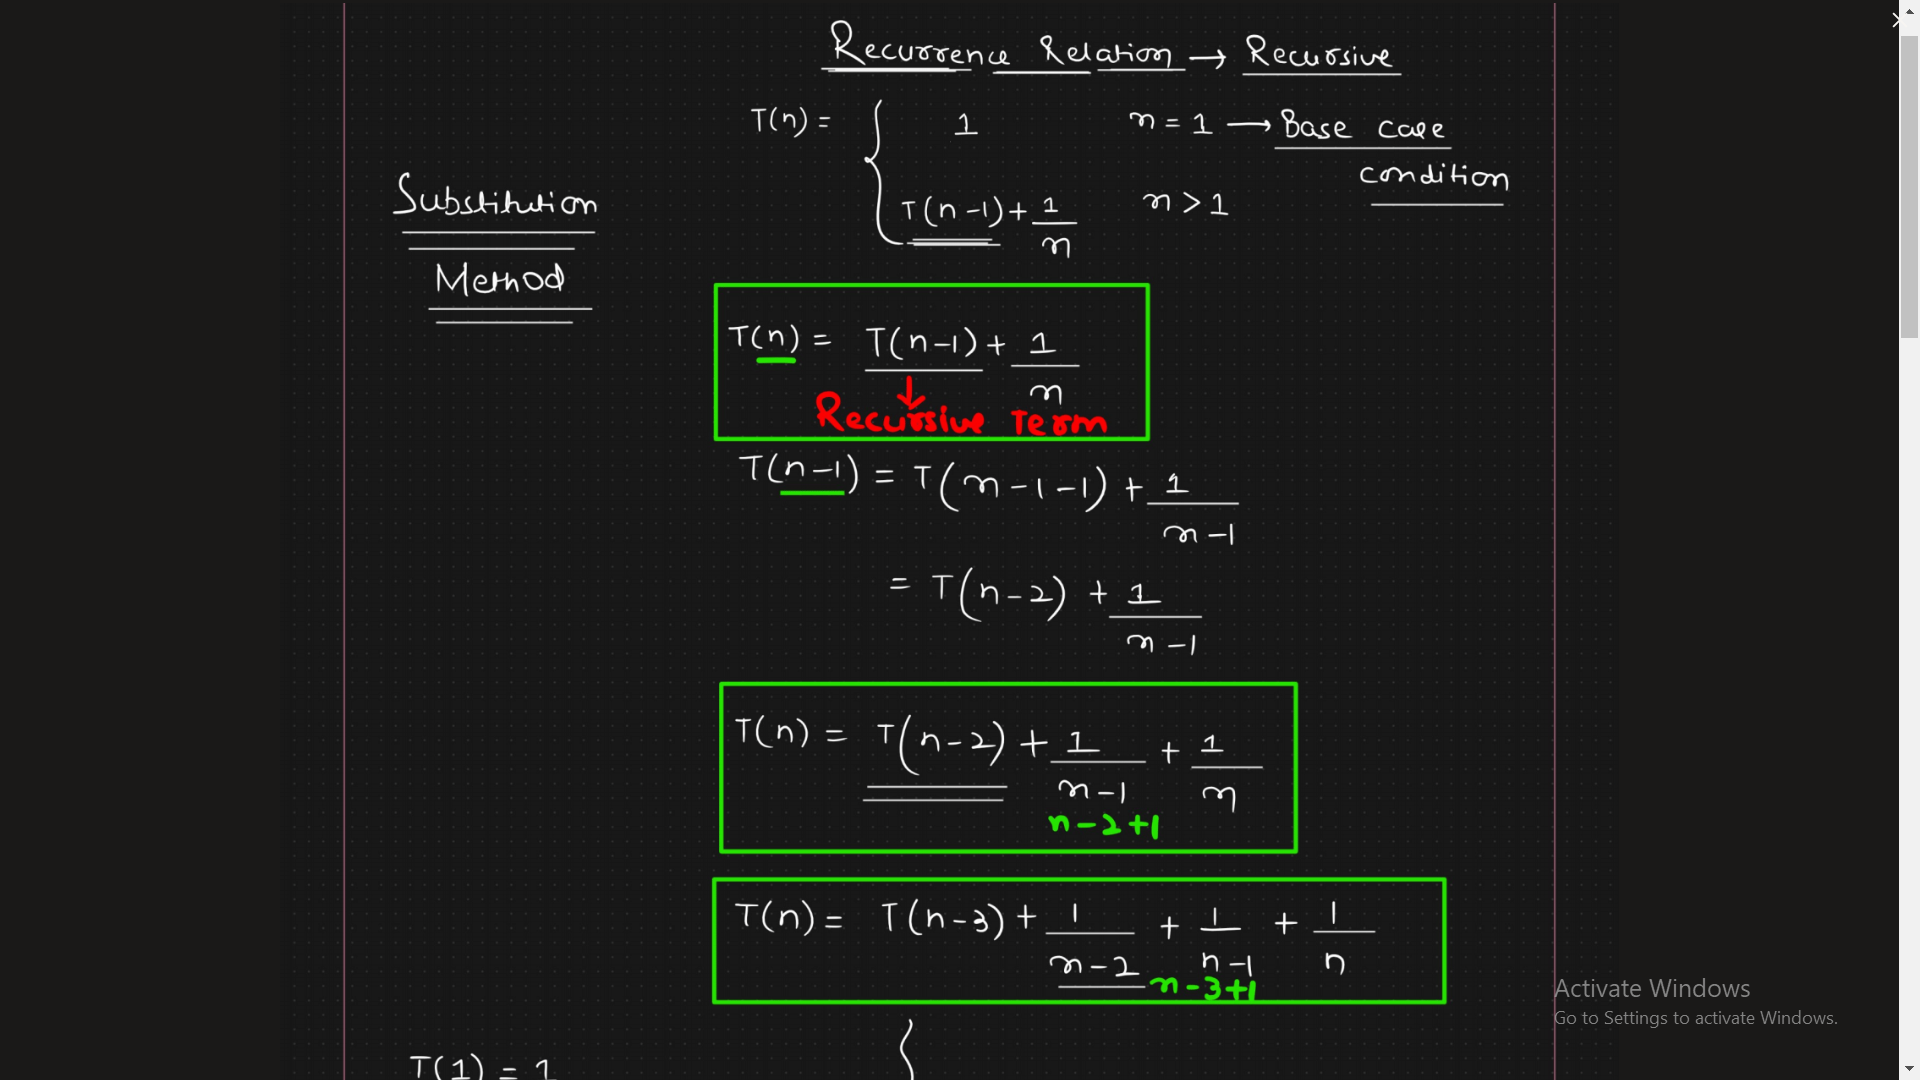 Recurrence Relation → Recursive
T(n) = { 1 n = 1 → Base case
condition
T(n-1) + 1/n n > 1
Substitution
Method
T(n) = T(n-1) + 1/n
↓
Recursive Term
T(n-1) = T(n-1-1) + 1/n-1
= T(n-2) + 1/n-1
T(n) = T(n-2) + 1/n-1 + 1/n
n-2+1
T(n) = T(n-3) + 1/n-2 + 1/n-1 + 1/n
n-3+1
T(1) = 1
Activate Windows
Go to Settings to activate Windows.